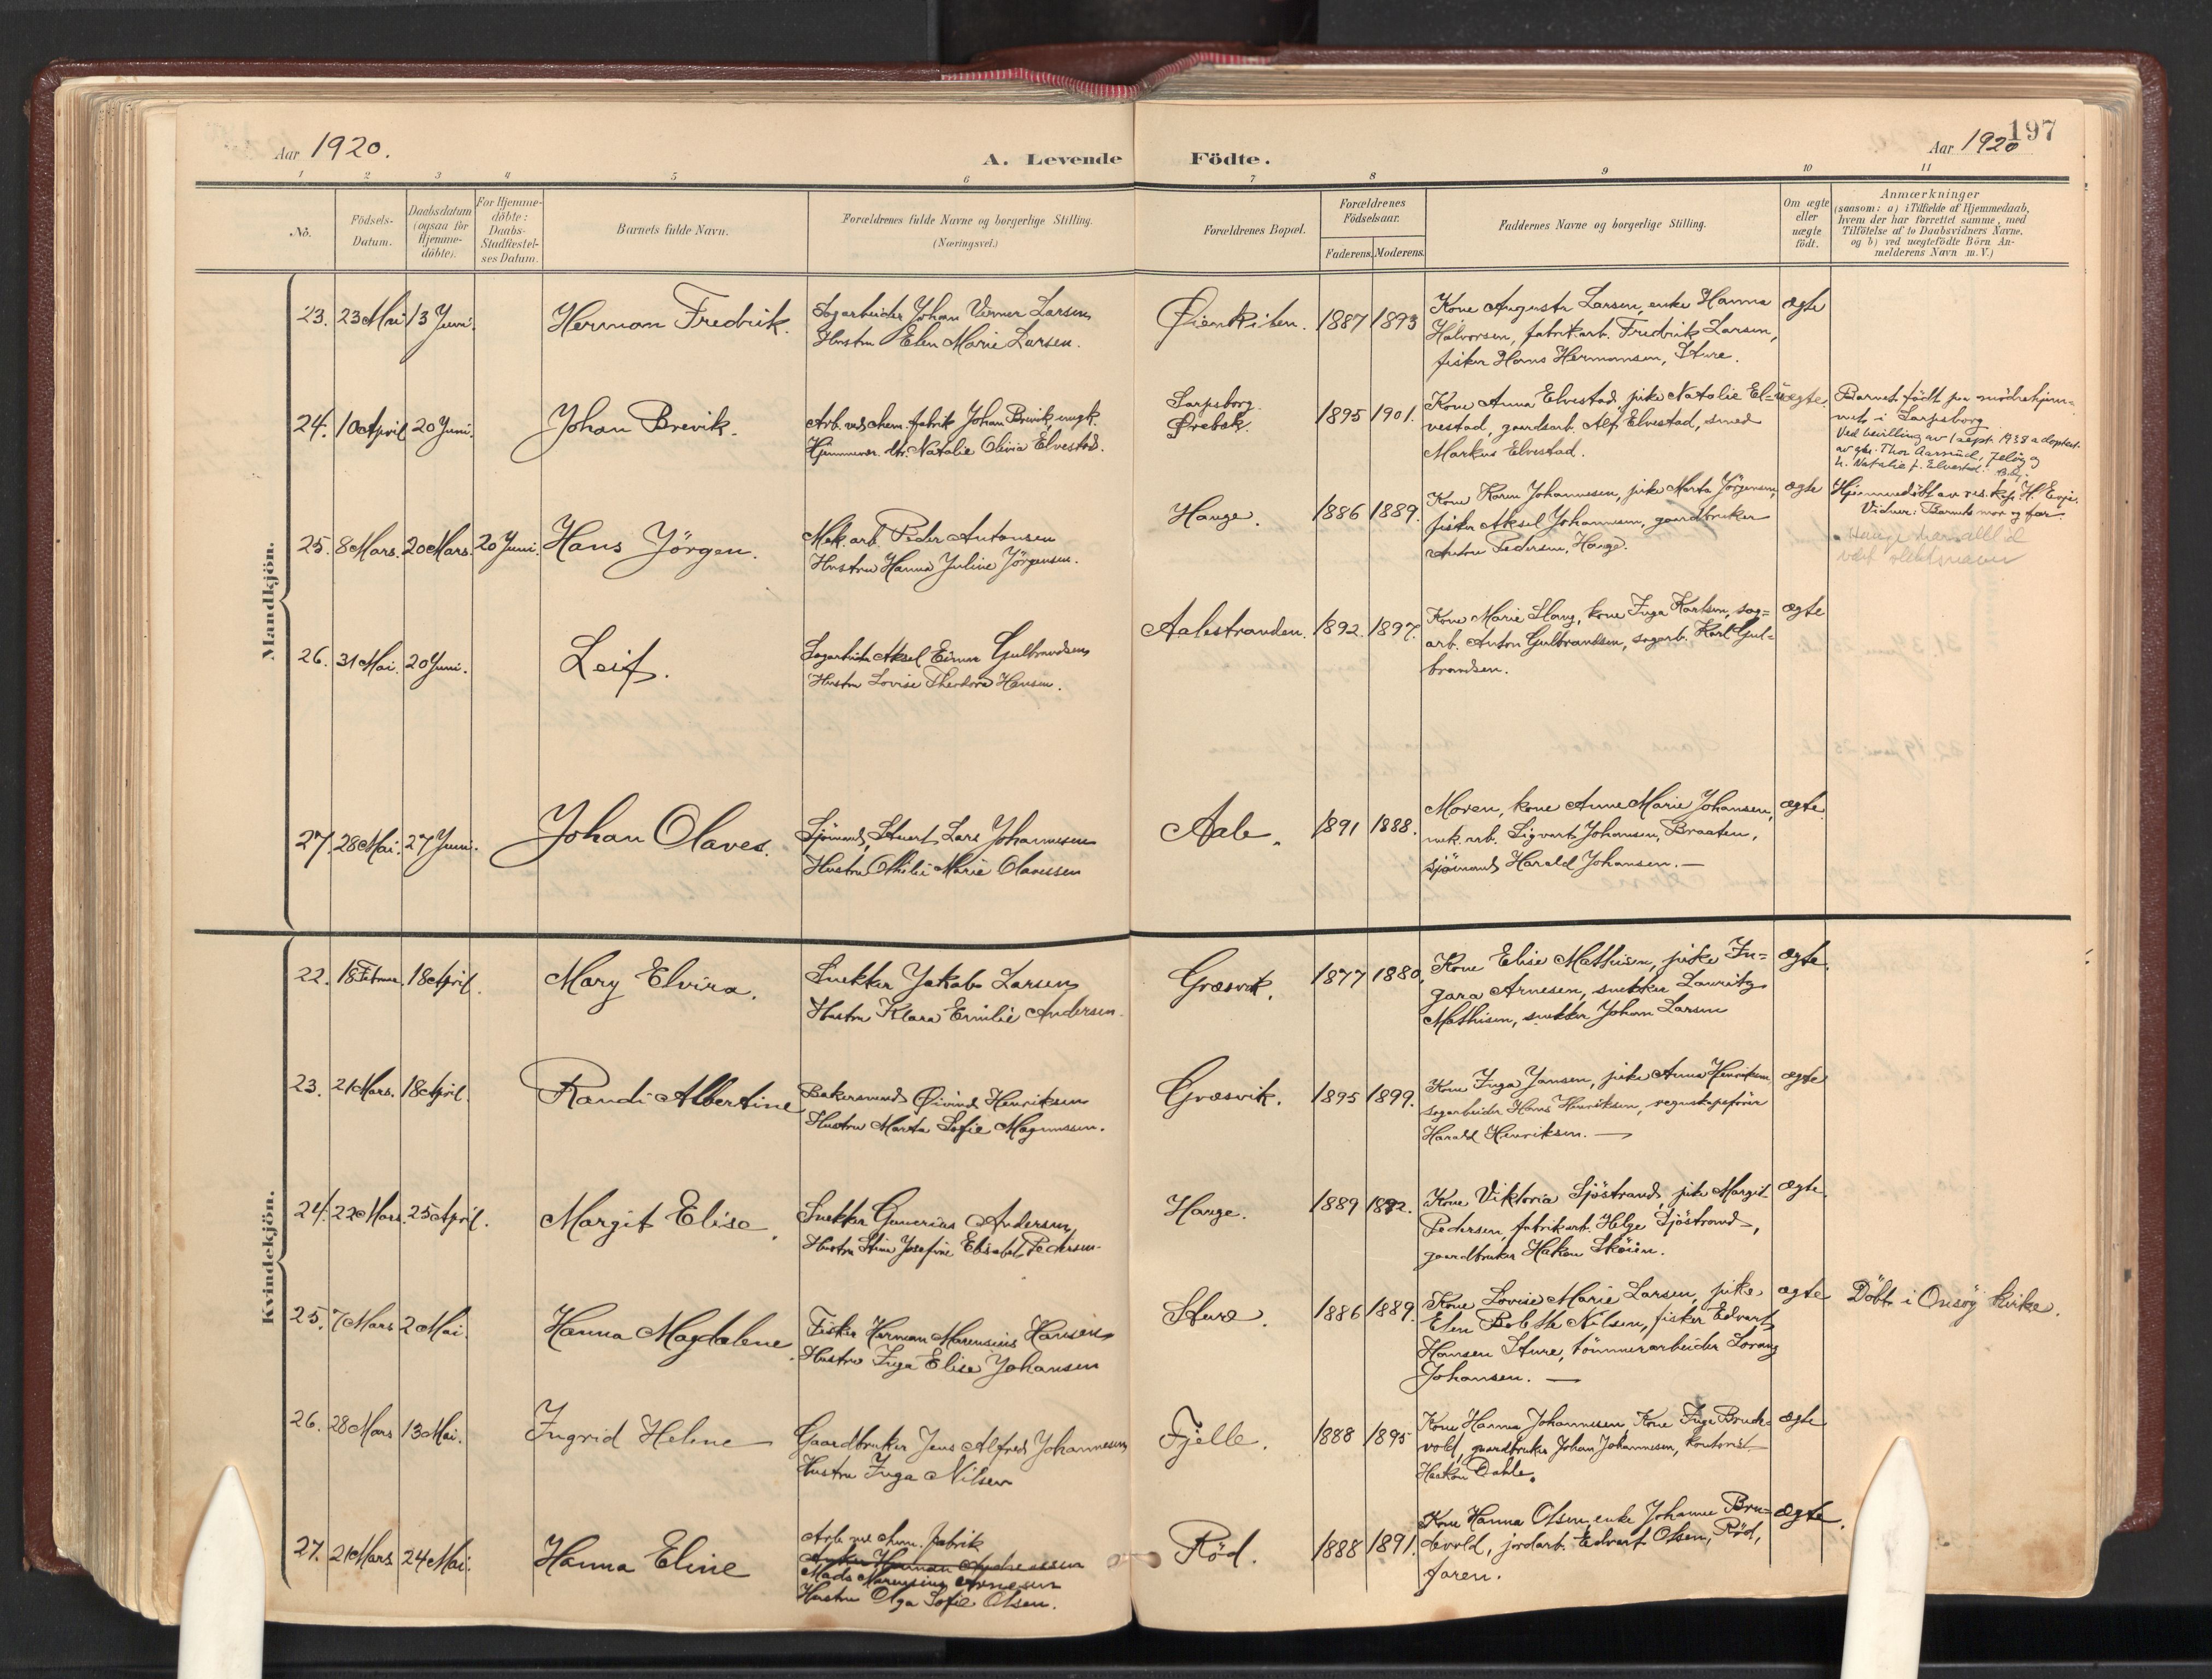 197
Aar 1920.
A. Levende Födte.
Aar 1920
1 2 3 4 5 6 7 8 9 10 11
No.
Födsels-
Datum.
Daabsdatum
(ogsaa for
Hjemme-
döbte).
For Hjemme-
döbte:
Daabs-
Stadfestel-
ses Datum.
Barnets fulde Navn.
Forældrenes fulde Navne og borgerlige Stilling.
(Næringsvei.)
Forældrenes Bopæl.
Forældrenes
Födselsaar.
Faderens. Moderens.
Faddernes Navne og borgerlige Stilling.
Om ægte
eller
uægte
födt.
Anmærkninger
(saasom: a) i Tilfælde af Hjemmedaab,
hvem der har forrettet samme, med
Tilföielse af to Daabsvidners Navne.
og b) ved uægtefödte Börn An-
melderens Navn m.V.)
Mandkjön.
23. 23 Mai 13 Juni. Herman Fredrik.
Sagarbeider Johan Verner Larsen
Hustru Elen Marie Larsen.
Öienkilen. 1887 1893
Kone Augusta Larsen, enke Hanna
Halvorsen, fabrikarb. Fredrik Larsen,
fisker Hans Hermansen, Sture.
ægte
24. 10 April 20 Juni. Johan Brevik.
Arb. ved chem. fabrik Johan Brevik, ungk.
Hjemmevær. dtr. Natalie Olivia Elvestad.
Sarpsborg.
Ørebæk. 1895 1901.
Kone Anna Elvestad, pike Natalie El-
vestad, gaardsarb. Alf Elvestad, smed
Markus Elvestad.
uægte.
Barnet födt paa mödrehjem-
met i Sarpsborg
Ved bevilling av 1 sept. 1938 adoptert
av gbr. Thor Aarsrud, Jelöy og
h. Natalie f. Elvestad.
25. 8 Mars. 20 Mars. 20 Juni. Hans Jörgen.
Mek. arb. Peder Antonsen
Hustru Hanna Juline Jörgensen.
Hauge. 1886 1889.
Kone Karen Johannesen, pike Marta Jörgensen,
fisker Aksel Johannesen, gaardbruker
Anton Pedersen, Hauge.
ægte
Hjemmedöbt av res. kap. H. Evje.
Vidner: Barnets mor og far.
Hauge har alltid
vært slektsnavn
26. 31 Mai. 20 Juni. Leif.
Sagarbeider Aksel Einar Gulbrandsen
Hustru Lovise Theodora Hansen.
Aalestranden. 1892. 1897.
Kone Marie Slang, kone Inga Karlsen, sag-
arb. Anton Gulbrandsen, sagarb. Karl Gul-
brandsen.
ægte
27. 28 Mai. 27 Juni. Johan Olaves.
Sjömand, Stuert Lars Johannesen
Hustru Othilie Marie Olavessen
Aale. 1891 1888.
Moren, kone Anne Marie Johansen,
mek. arb. Sigvart Johansen, Braaten,
sjömand Harald Johansen. —
ægte.
Kvindekjön.
22. 18 Februar. 18 April. Mary Elvira.
Snekker Jakob Larsen
Hustru Klara Emilie Andersen.
Græsvik. 1877 1880.
Kone Elise Mathisen, pike In-
gara Arnesen, snekker Lauritz
Mathisen, snekker Johan Larsen
ægte.
23. 21 Mars. 18 April. Randi Albertine
Bakersvend Øivind Henriksen
Hustru Marta Sofie Magnussen.
Græsvik. 1895 1899.
Kone Inga Jansen, pike Anna Henriksen,
sagarbeider Hans Henriksen, regnskapsförer
Harald Henriksen. —
ægte
24. 22 Mars. 25 April. Margit Elise.
Snekker Gunerius Andersen
Hustru Stina Josefine Elisabet Pedersen.
Hauge. 1889 1892.
Kone Viktoria Sjöstrand, pike Margit
Pedersen, fabrikarb. Helge Sjöstrand,
gaardbruker Hakon Skåien.
ægte.
25. 7 Mars 2 Mai. Hanna Magdalene.
Fisker Herman Marensius Hansen
Hustru Inga Elise Johansen
Sture. 1886 1889.
Kone Lovise Marie Larsen, pike
Elen Bolette Nilsen, fisker Edvart
Hansen Sture, tömmerarbeider Lorang
Johansen. —
ægte
Döbt i Onsöy kirke.
26. 28 Mars 13 Mai. Ingrid Helene
Gaardbruker Jens Alfred Johannesen
Hustru Inga Nilsen
Fjelle. 1888 1895
Kone Hanna Johannesen, Kone Inga Brude-
vold, gaardbruker Johan Johannesen, kontorist
Haakon Dahle.
ægte
27. 21 Mars 24 Mai. Hanna Eline
Arb. ved chem. fabrik
Anker Herman Andreassen
Mads Marensius Arnesen
Hustru Olga Sofie Olsen.
Röd. 1888 1891.
Kone Hanna Olsen, enke Johanne Bru-
devold, jordarb. Edvart Olsen, Röd,
faren.
ægte.